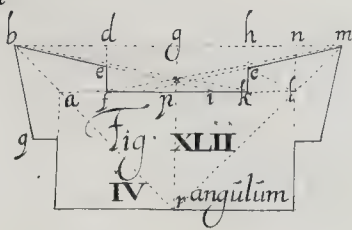 b d g h n m
e e
a f p i k l
g Fig. XLII
IV r angūlūm